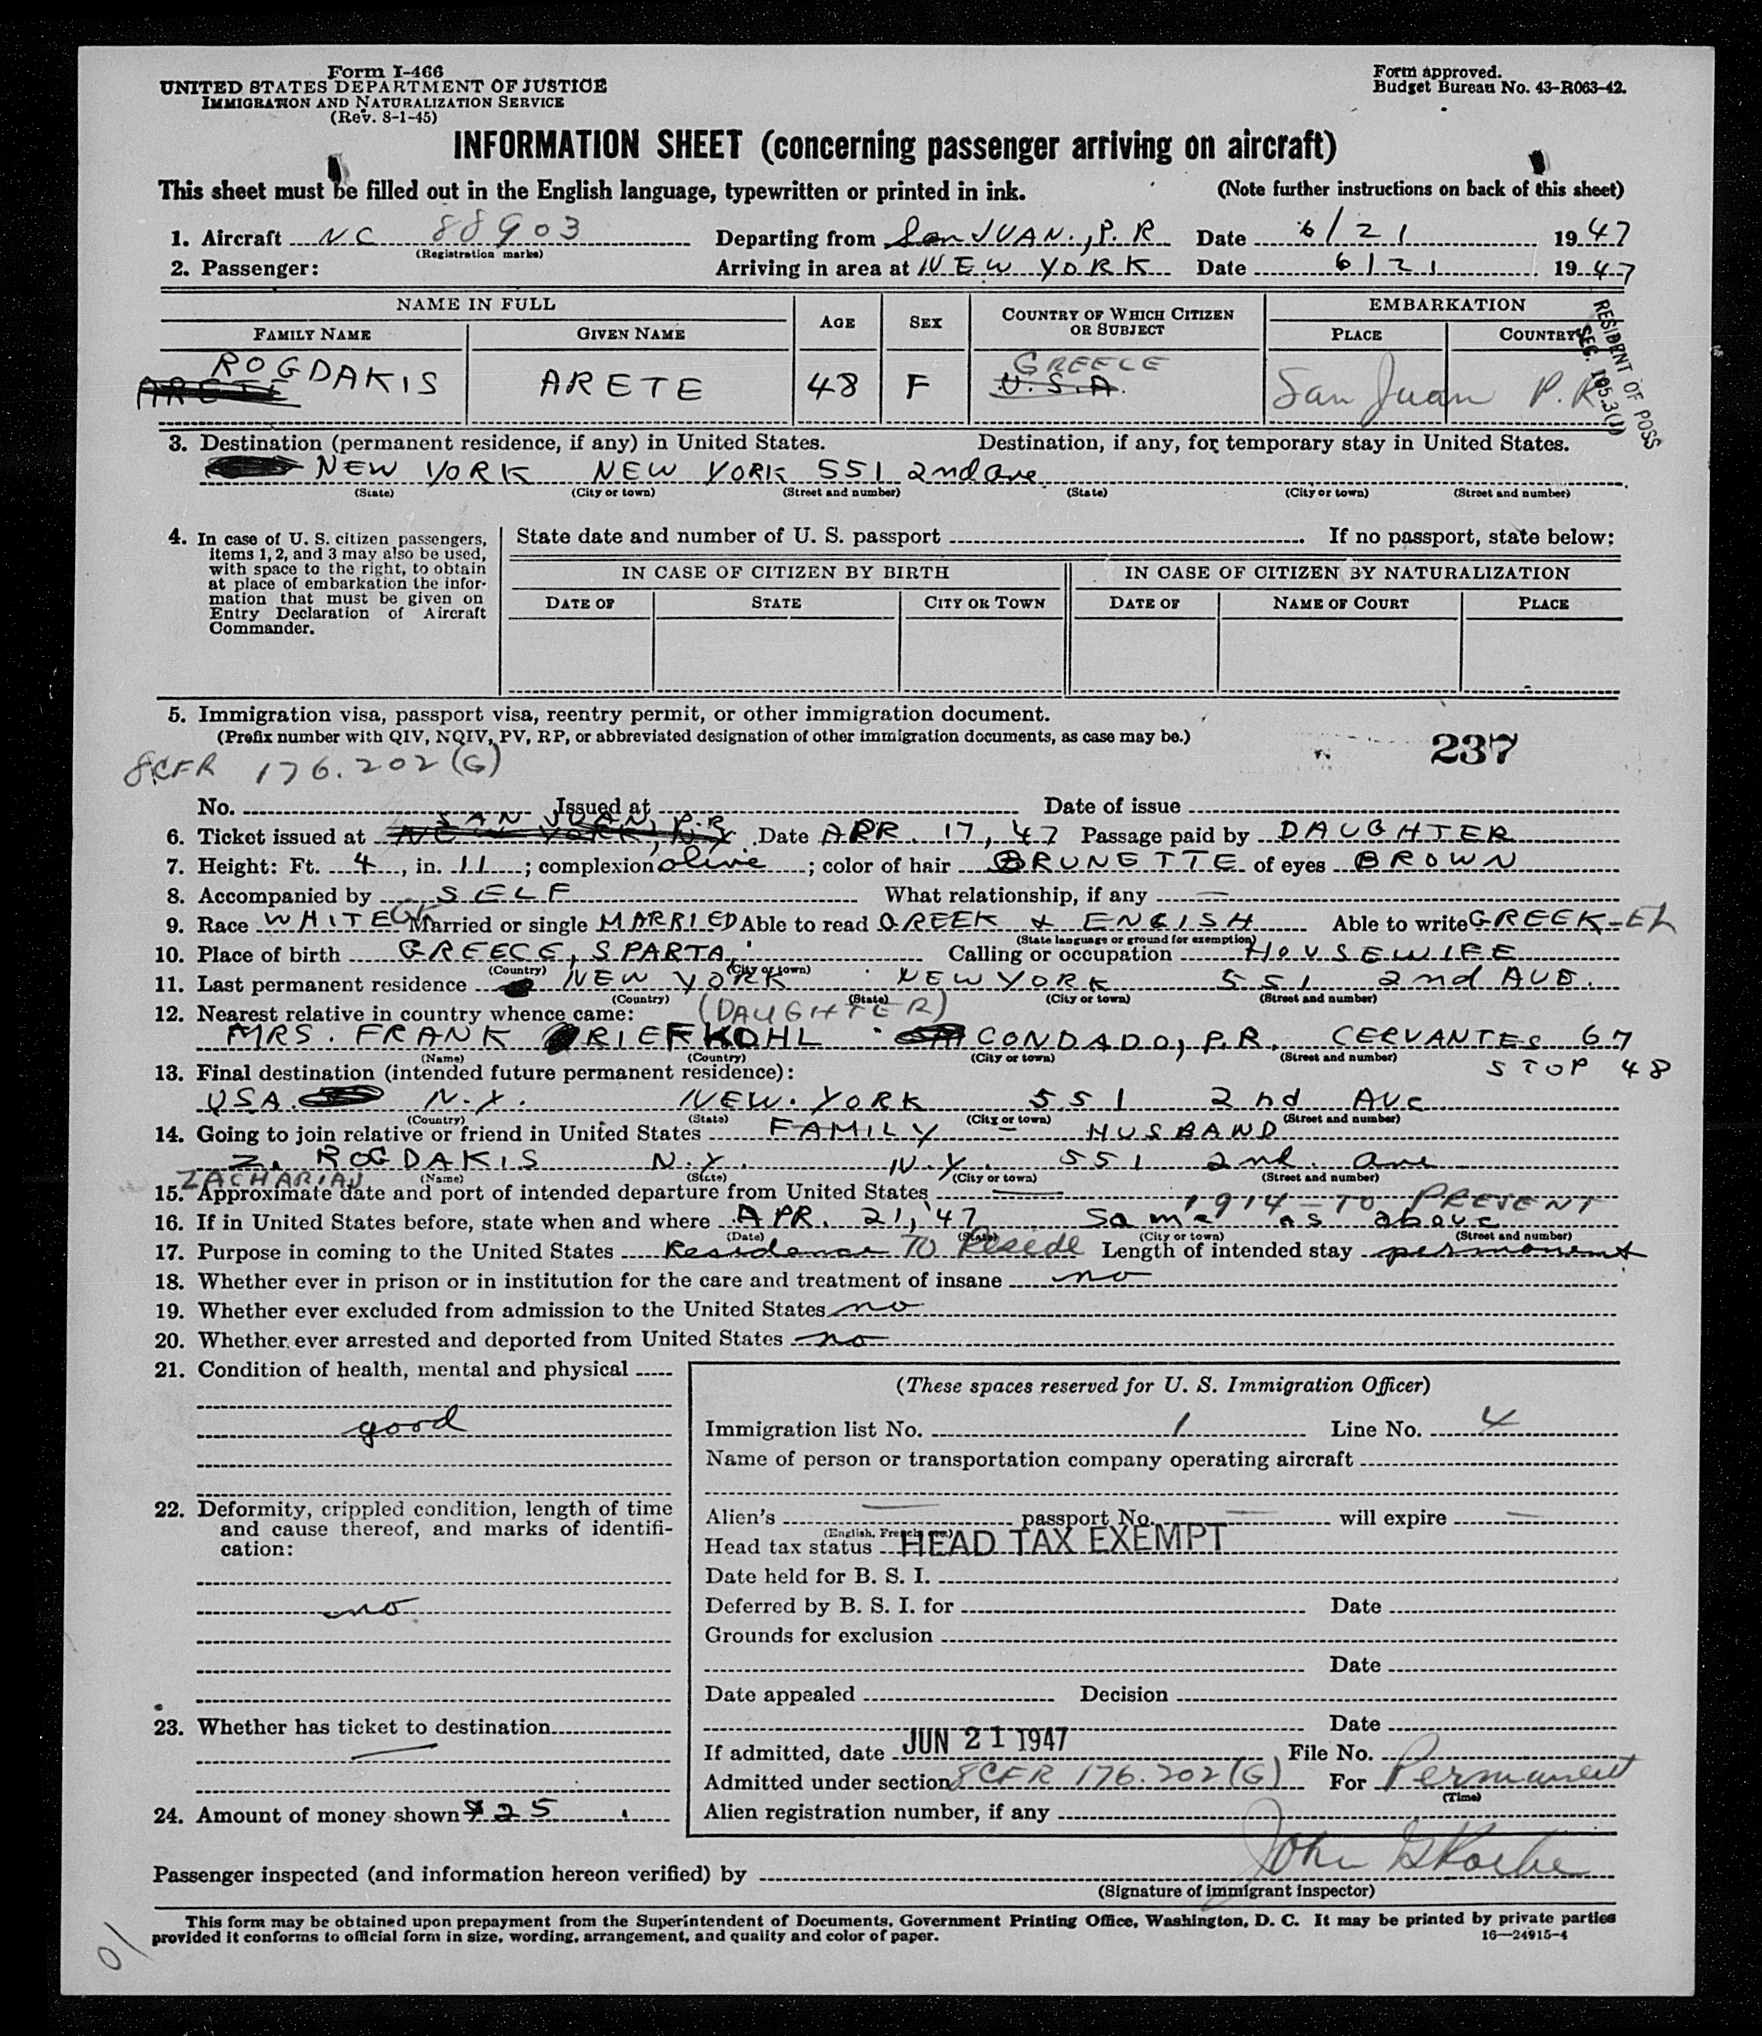 Form I-466
UNITED STATES DEPARTMENT OF JUSTICE
IMMIGRATION AND NATURALIZATION SERVICE
(Rev. 8-1-45)
Form approved.
Budget Bureau No. 43-R063-42.
INFORMATION SHEET (concerning passenger arriving on aircraft)
This sheet must be filled out in the English language, typewritten or printed in ink. (Note further instructions on back of this sheet)
1. Aircraft NC 88903 Departing from San JUAN., P.R Date 6/21 1947
(Registration marks)
2. Passenger: Arriving in area at NEW YORK Date 6/21 1947
NAME IN FULL AGE SEX COUNTRY OF WHICH CITIZEN OR SUBJECT EMBARKATION
FAMILY NAME GIVEN NAME PLACE COUNTRY
RESIDENT OF POSS
SEC. 105.3(1)
ROGDAKIS GREECE
ARETE ARETE 48 F U.S.A. San Juan P.R.
3. Destination (permanent residence, if any) in United States. Destination, if any, for temporary stay in United States.
NEW YORK NEW YORK 551 2nd ave
(State) (City or town) (Street and number) (State) (City or town) (Street and number)
4. In case of U. S. citizen passengers, items 1, 2, and 3 may also be used, with space to the right, to obtain at place of embarkation the information that must be given on Entry Declaration of Aircraft Commander.
State date and number of U. S. passport If no passport, state below:
IN CASE OF CITIZEN BY BIRTH IN CASE OF CITIZEN BY NATURALIZATION
DATE OF STATE CITY OR TOWN DATE OF NAME OF COURT PLACE
5. Immigration visa, passport visa, reentry permit, or other immigration document.
(Prefix number with QIV, NQIV, PV, RP, or abbreviated designation of other immigration documents, as case may be.)
237
8CFR 176.202(G)
No. Issued at Date of issue
SAN JUAN, P.R
6. Ticket issued at NEW YORK, N.Y Date APR. 17, 47 Passage paid by DAUGHTER
7. Height: Ft. 4, in. 11; complexion olive; color of hair BRUNETTE of eyes BROWN
8. Accompanied by SELF What relationship, if any —
9. Race WHITE Married or single MARRIED Able to read GREEK & ENGISH Able to write GREEK-
(State language or ground for exemption)
10. Place of birth GREECE, SPARTA Calling or occupation HOUSEWIFE
(Country) (City or town)
11. Last permanent residence NEW YORK NEW YORK 551 2nd AVE.
(Country) (State) (City or town) (Street and number)
12. Nearest relative in country whence came: (DAUGHTER)
MRS. FRANK RIEFKOHL CONDADO, P.R. CERVANTES 67
(Name) (Country) (City or town) (Street and number)
STOP 48
13. Final destination (intended future permanent residence):
USA. N.Y. NEW. YORK 551 2nd AVe
(Country) (State) (City or town) (Street and number)
14. Going to join relative or friend in United States FAMILY — HUSBAND
Z. ROGDAKIS N.Y. N.Y. 551 2nd. ave
(Name) (State) (City or town) (Street and number)
15. Approximate date and port of intended departure from United States —
1914 - TO PRESENT
16. If in United States before, state when and where APR. 21, '47 Same as above
(Date) (State) (City or town) (Street and number)
17. Purpose in coming to the United States Residence TO Reside Length of intended stay permanent
18. Whether ever in prison or in institution for the care and treatment of insane no
19. Whether ever excluded from admission to the United States no
20. Whether ever arrested and deported from United States no
21. Condition of health, mental and physical
good
22. Deformity, crippled condition, length of time and cause thereof, and marks of identification:
no
23. Whether has ticket to destination
—
24. Amount of money shown $25
(These spaces reserved for U. S. Immigration Officer)
Immigration list No. 1 Line No. 4
Name of person or transportation company operating aircraft
Alien's — passport No. — will expire —
(English, French, etc.)
Head tax status HEAD TAX EXEMPT
Date held for B. S. I.
Deferred by B. S. I. for Date
Grounds for exclusion
Date
Date appealed Decision
Date
If admitted, date JUN 21 1947 File No.
Admitted under section 8CFR 176.202(G) For Permanent
(Time)
Alien registration number, if any
Passenger inspected (and information hereon verified) by John
(Signature of immigrant inspector)
This form may be obtained upon prepayment from the Superintendent of Documents, Government Printing Office, Washington, D. C. It may be printed by private parties
provided it conforms to official form in size, wording, arrangement, and quality and color of paper. 16—24915-4